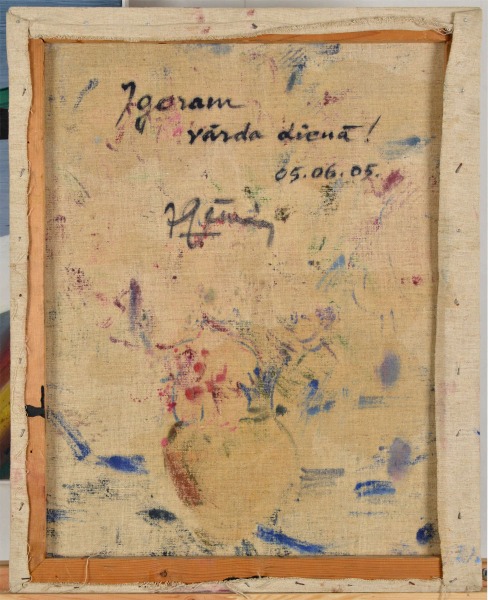 Igoram
vārda dienā!
05.06.05.